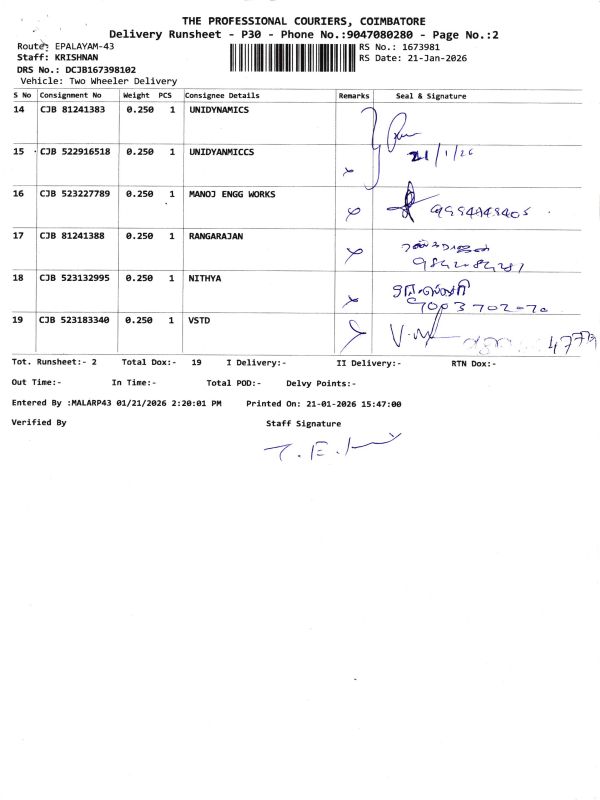 THE PROFESSIONAL COURIERS, COIMBATORE
Delivery Runsheet - P30 - Phone No.:9047080280 - Page No.:2
Route: EPALAYAM-43 RS No.: 1673981
Staff: KRISHNAN RS Date: 21-Jan-2026
DRS No.: DCJB167398102
Vehicle: Two Wheeler Delivery
S No Consignment No Weight PCS Consignee Details Remarks Seal & Signature
14 CJB 81241383 0.250 1 UNIDYNAMICS
15 CJB 522916518 0.250 1 UNIDYANMICCS 21/1/26
16 CJB 523227789 0.250 1 MANOJ ENGG WORKS
17 CJB 81241388 0.250 1 RANGARAJAN
18 CJB 523132995 0.250 1 NITHYA
9003702070
19 CJB 523183340 0.250 1 VSTD
Tot. Runsheet:- 2 Total Dox:- 19 I Delivery:- II Delivery:- RTN Dox:-
Out Time:- In Time:- Total POD:- Delvy Points:-
Entered By :MALARP43 01/21/2026 2:20:01 PM Printed On: 21-01-2026 15:47:00
Verified By Staff Signature